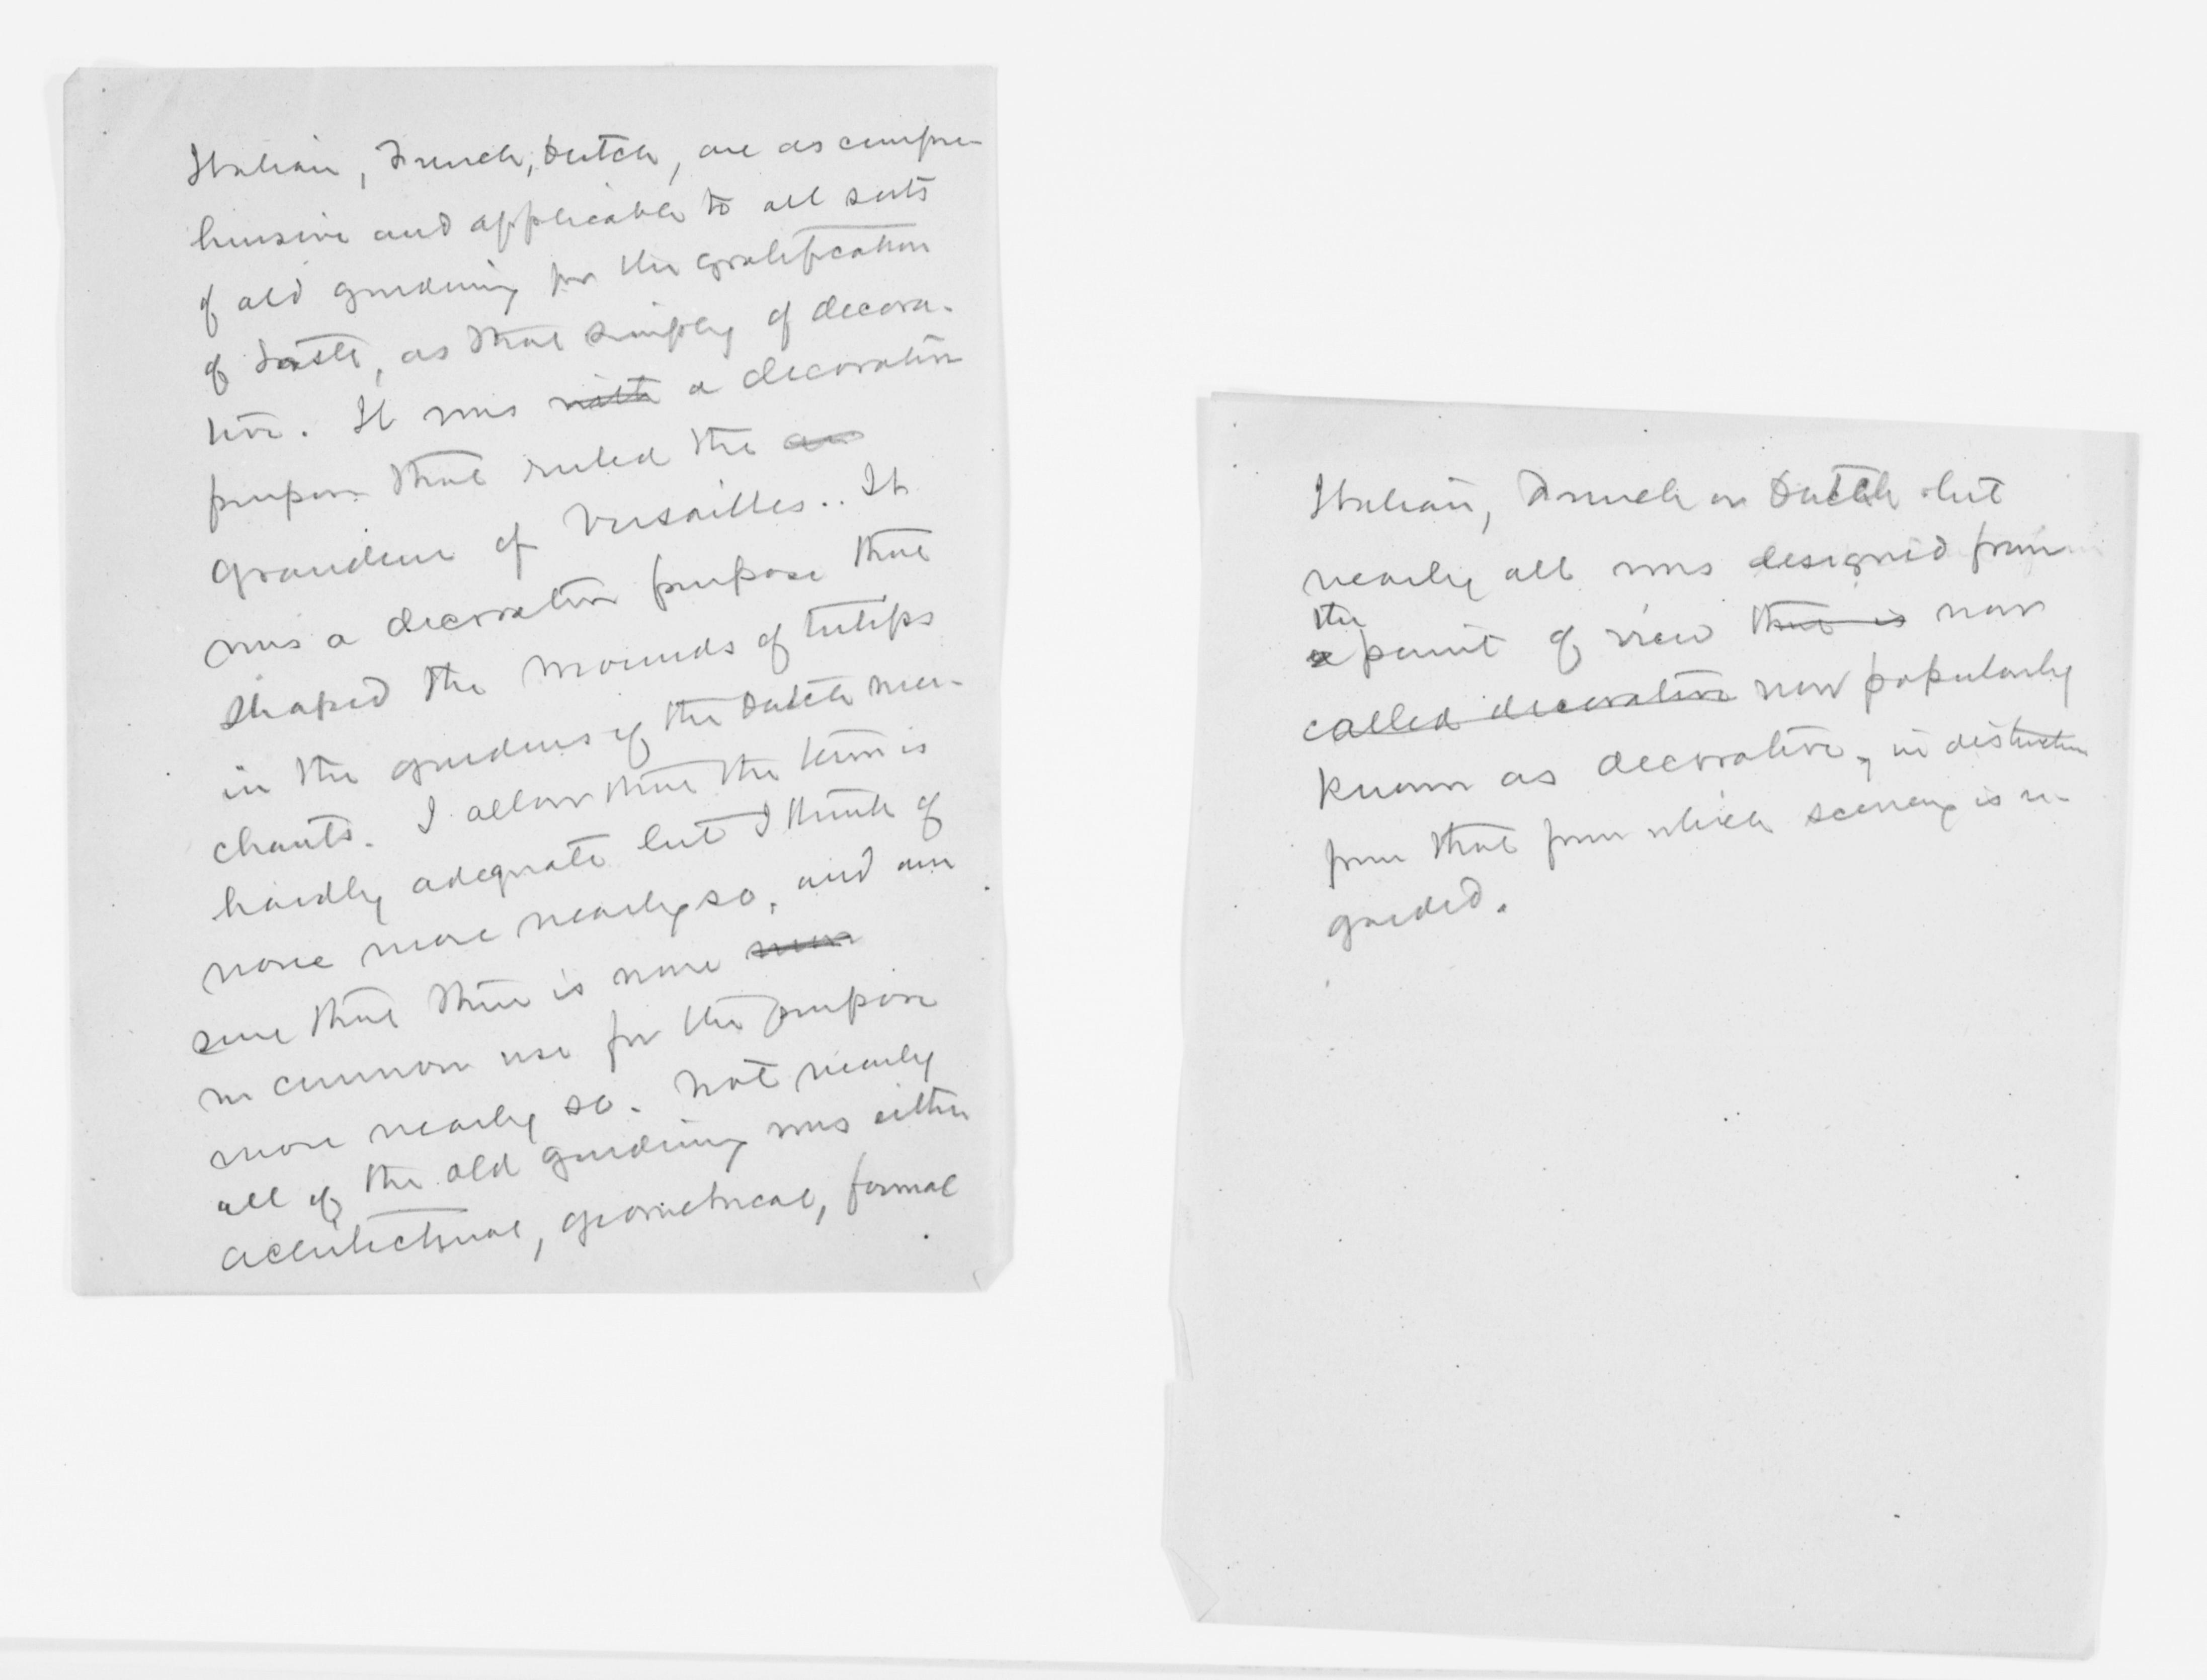 Italian, French, Dutch, are as compre-
hensive and applicable to all sorts
of old gardening for the gratification
of taste, as that simply of decora-
tive. It was with a decorative
purpose that ruled the
grandeur of Versailles.. It
was a decorative purpose that
shaped the mounds of tulips
in the gardens of the Dutch mer-
chants. I allow that the term is
hardly adequate but I think of
none more nearly so, and am
sure that there is none
in common use for the purpose
more nearly so. Not nearly
all of the old gardening was either
architectural, geometrical, formal
Italian, French or Dutch but
nearly all was designed from
the
a point of view that is now
called decorative now popularly
known as decorative, in distinction
from that from which scenery is re-
garded.